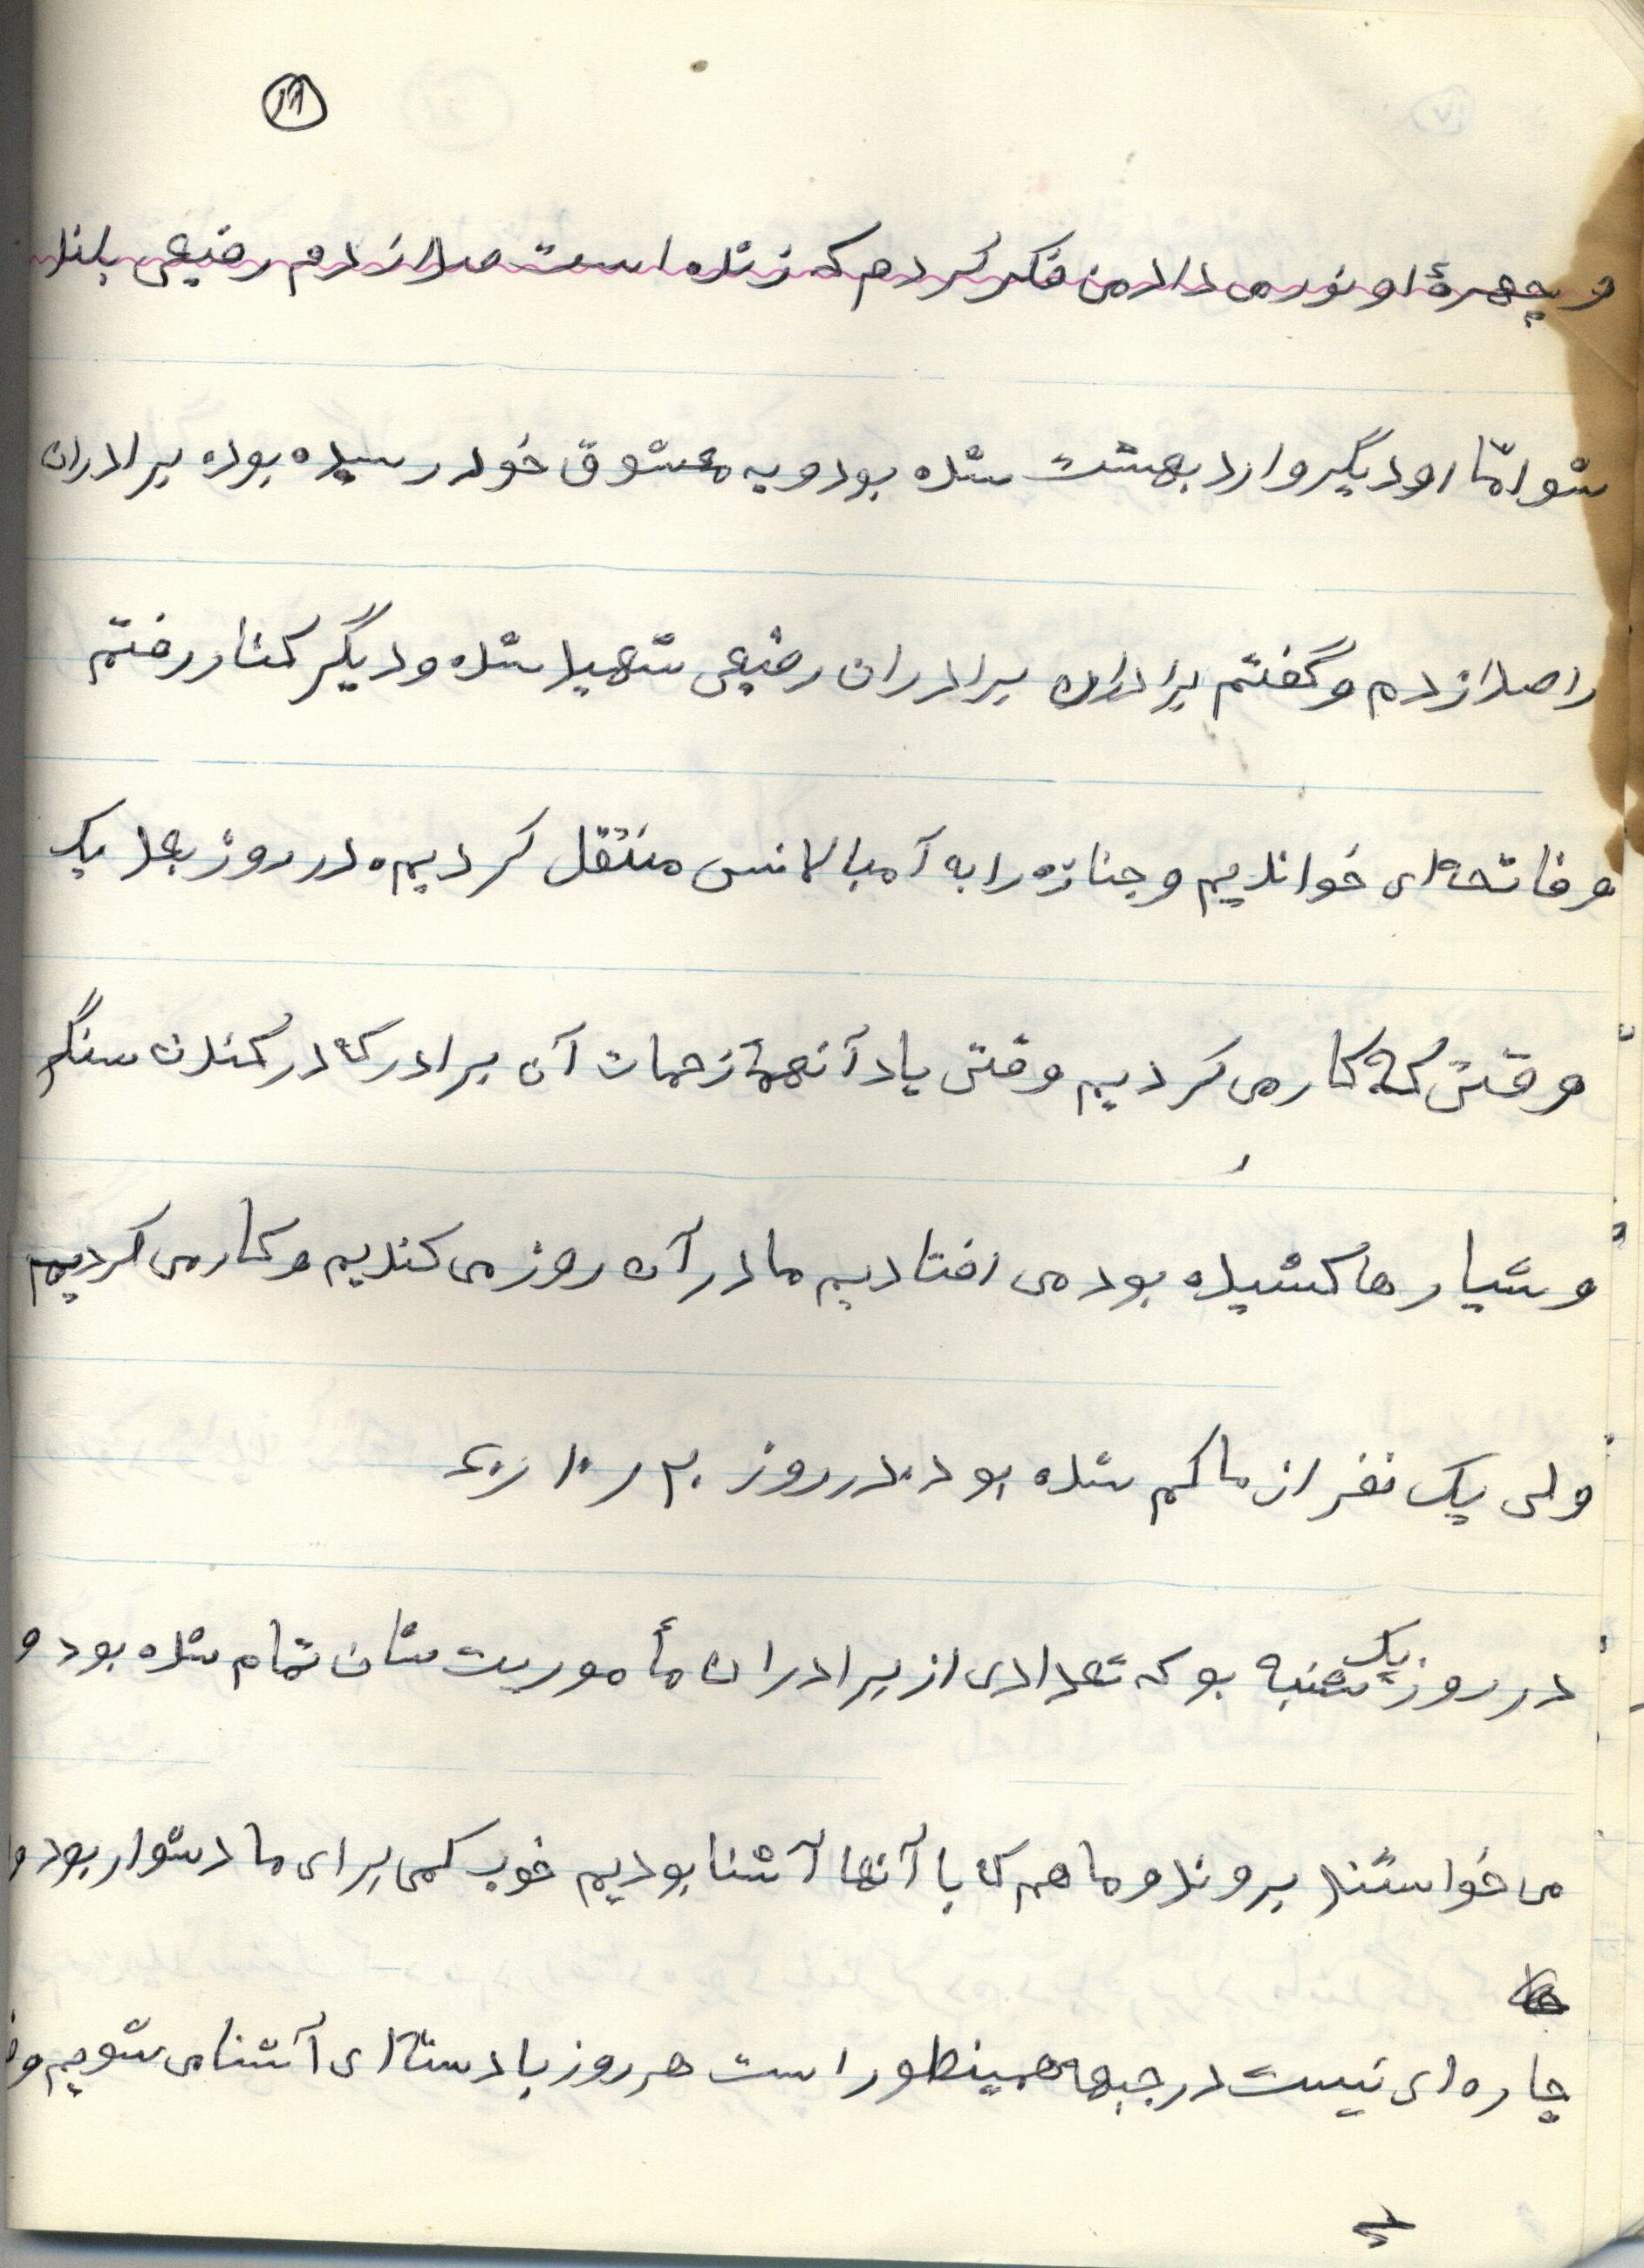 و چهرهٔ او نور می داد من فکر کردم که زنده است صدا زدم رفیعی بلند
شو امّا او دیگر وارد بهشت شده بود و به معشوق خود رسیده بوده برادران
را صدا زدم و گفتم برادران برادران رفیعی شهید شده و دیگر کنار رفتم
و فاتحه ای خواندیم و جنازه را به آمبالانس منتقل کردیم. در روز بعد یک
وقتی که کار می کردیم وقتی یاد آنهمه زحمات آن برادر که در کندن سنگر
و شیارها کشیده بود می افتادیم ما در آن روز می کندیم و کار می کردیم
ولی یک نفر از ما کم شده بود. در روز
در روز یک شنبه بو که تعدادی از برادران مأموریت شان تمام شده بود و
می خواستند بروند و ما هم که با آنها آشنا بودیم خوب کمی برای ما دشوار بود و
چاره ای نیست در جبهه همینطور است هر روز با دسته ای آشنا می شویم و